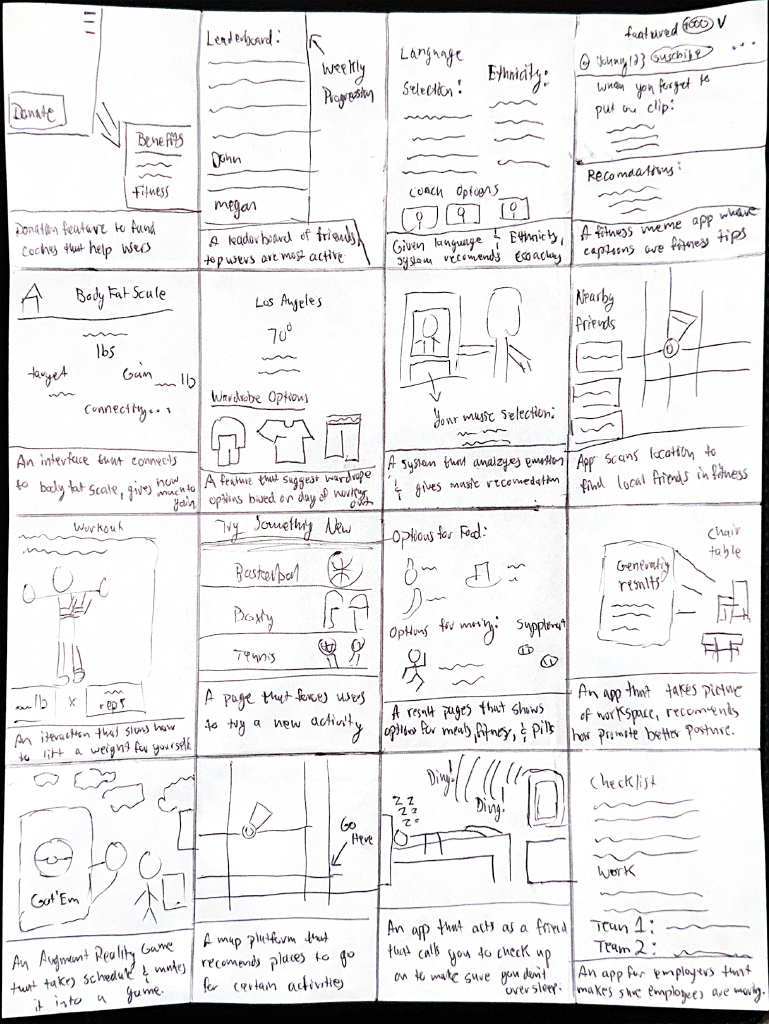 Donate
Benefits
Fitness
Donation feature to fund
coches that help users
Leaderboard:
Weekly
Progression
John
megan
A leaderboard of friends,
top users are most active
Language
Selection:
Ethnicity:
Coach Options
Given language & Ethnicity,
system recomends ecoaches
featured GOOD V
Johnny123 suscribe ...
When you forget to
put on clip:
Recomdations:
A fitness meme app where
captions are fitness tips
Body Fat Scale
lbs
target
Gain
lb
connecting...
An interface that connects
to body fat scale, gives how
much to
gain
Los Angeles
70°
Wardrobe Options
A feature that suggest wardrope
options based on day of working
out
Your music selection:
A system that analyzes emotion
& gives music recomedation
Nearby
friends
App scans location to
find local friends in fitness
Workout
lb x reps
An iteraction that shows how
to lift a weight for yourself
Try Something New
Basketball
Boxing
Tennis
A page that forces users
to try a new activity
Options for Food:
Options for moving:
Supplement
A result pages that shows
options for meals, fitness, & pills
Chair
table
Generating
results
An app that takes picture
of workspace, recomends
how promote better posture.
Got 'Em
An Augment Reality Game
that takes schedule & makes
it into a game.
Go
Here
A map platform that
recomends places to go
for certain activities
Ding!
Ding!
z z
z z
z
An app that acts as a friend
that calls you to check up
on to make sure you don't
oversleep.
Checklist
Work
Team 1:
Team 2:
An app for employers that
makes sure employees are moving.